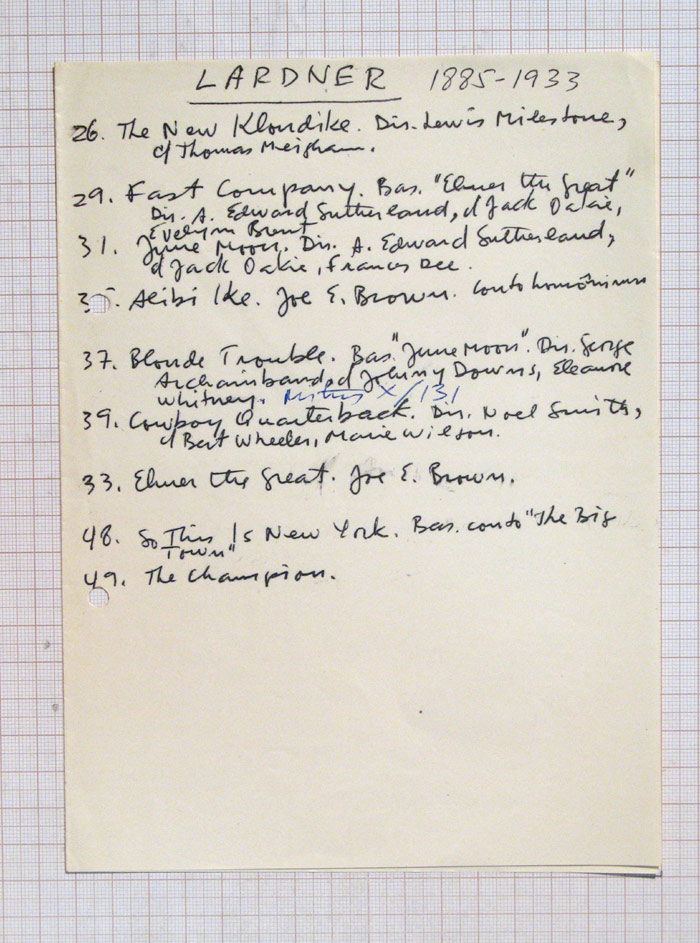 LARDNER 1885-1933
26. The New Klondike. Dir. Lewis Milestone,
c/ Thomas Meighan.
29. Fast Company. Bas. "Elmer the Great"
Dir. A. Edward Sutherland, c/ Jack Oakie,
Evelyn Brent
31. June Moon. Dir. A. Edward Sutherland,
c/ Jack Oakie, Frances Dee.
35. Alibi Ike. Joe E. Brown. conto homônimo
37. Blonde Trouble. Bas. "June Moon". Dir. George
Archainbaud, c/ Johnny Downs, Eleanore
Whitney. X/131
39. Cowboy Quarterback. Dir. Noel Smith,
c/ Bert Wheeler, Marie Wilson.
33. Elmer the Great. Joe E. Brown.
48. So This Is New York. Bas. conto "The Big
Town"
49. The Champion.